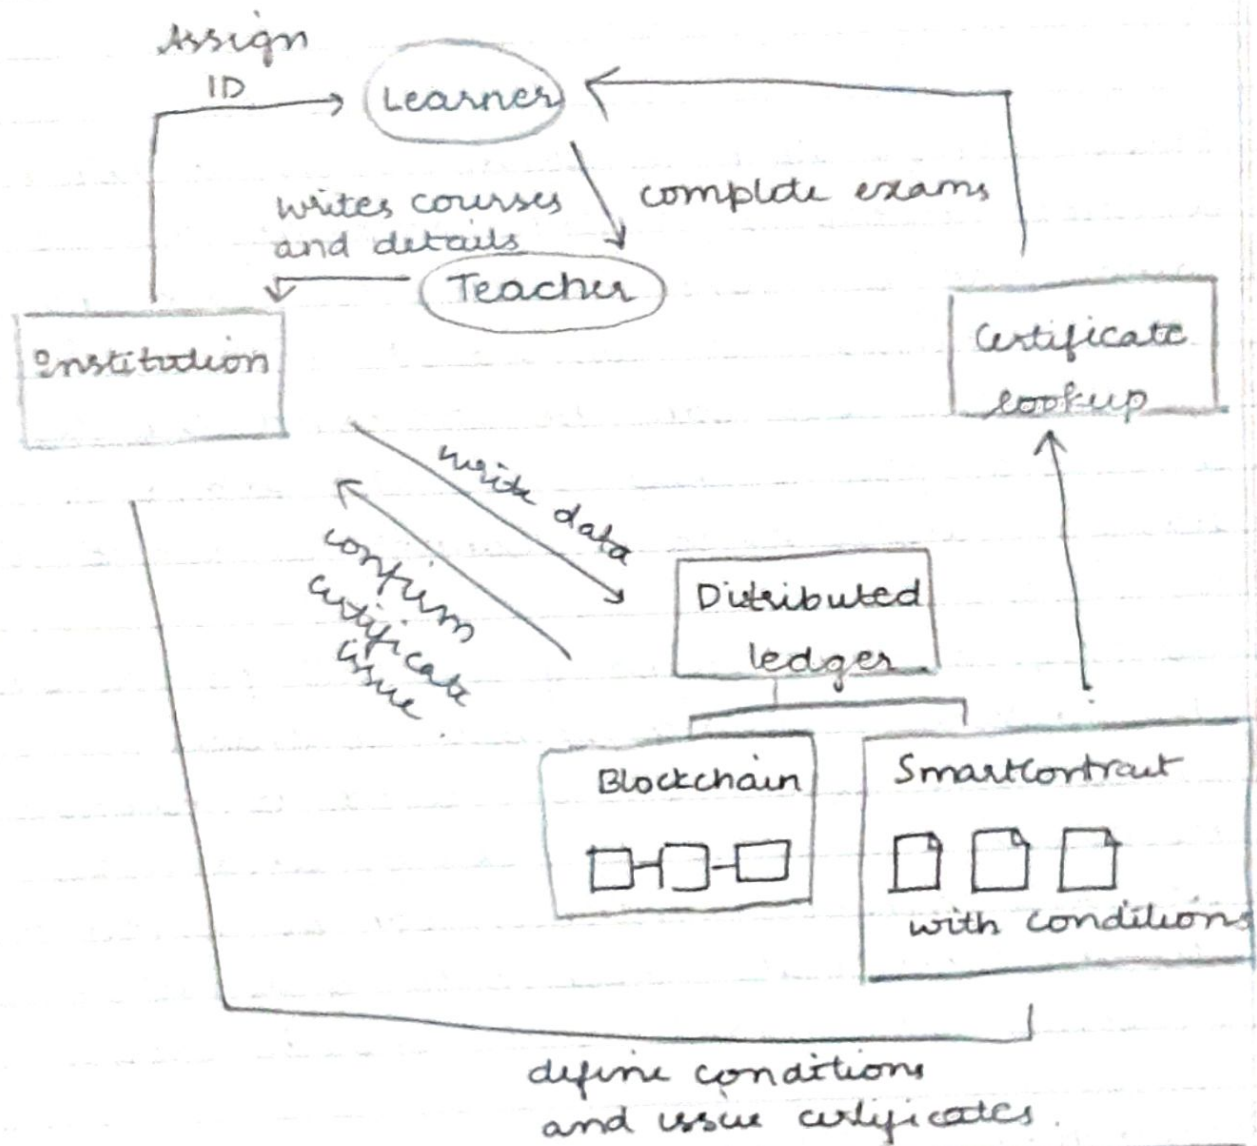 Assign
ID
Learner
writes courses
and details
complete exams
Teacher
Institution
Certificate
lookup
write data
confirm
certificate
issue
Distributed
ledger
Blockchain
SmartContract
with conditions
define conditions
and issue certificates.